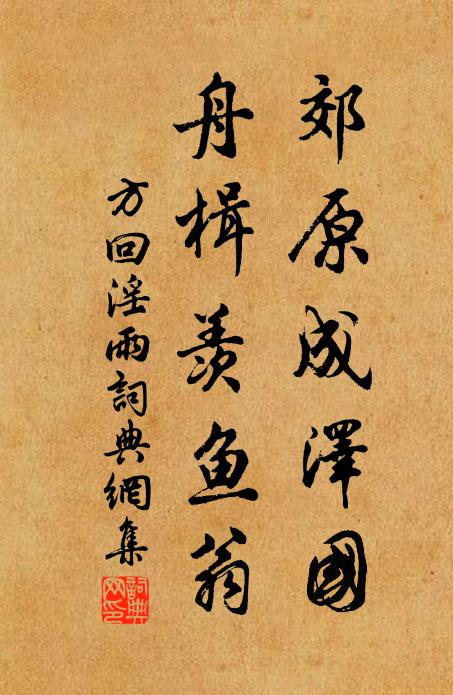 郊原成澤國
舟楫羨鱼翁
方回淫雨詞典網集
詞典
网印